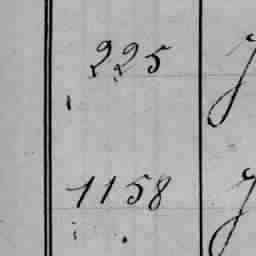 225
1158